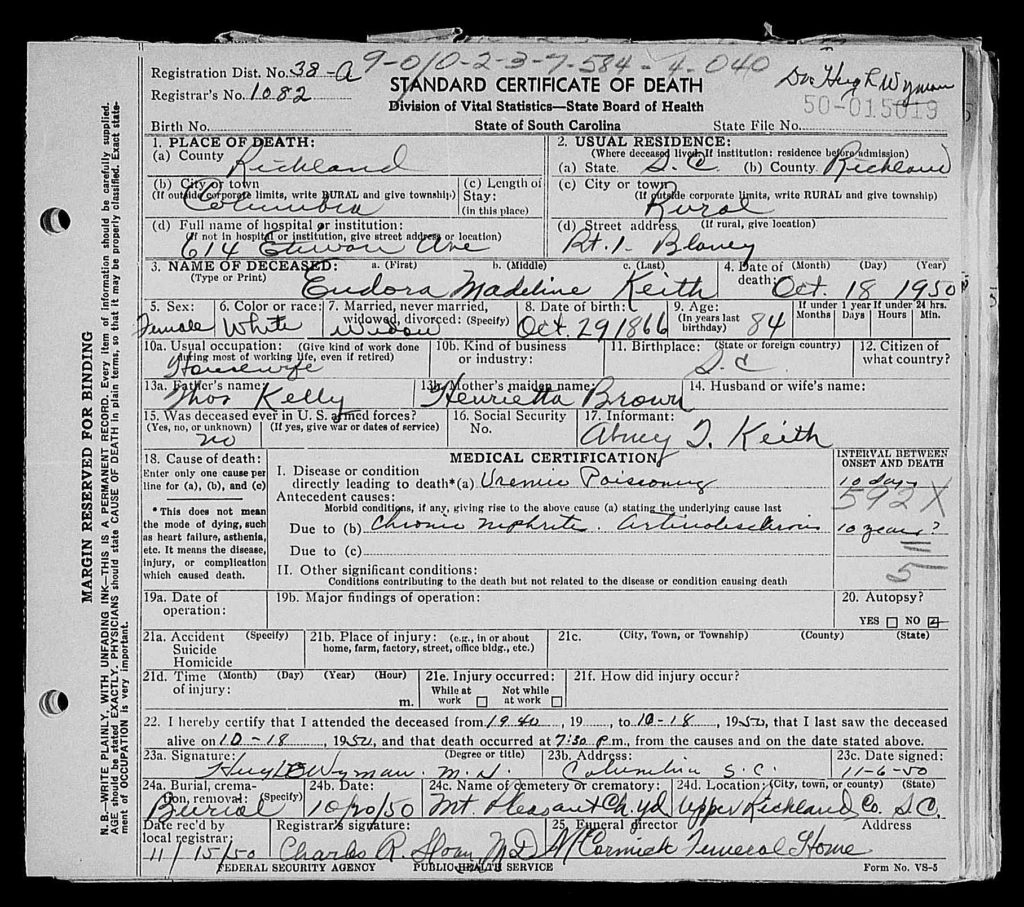 9-0/0-2-3-7-584-4-040
Registration Dist. No. 38-A
Dr. Hugh Wyman
STANDARD CERTIFICATE OF DEATH
Registrar's No. 1082
Division of Vital Statistics—State Board of Health
50-015019
Birth No.
State of South Carolina
State File No.
1. PLACE OF DEATH:
(a) County Richland
2. USUAL RESIDENCE:
(Where deceased lived. If institution: residence before admission)
(a) State S.C. (b) County Richland
(b) City or town
(If outside corporate limits, write RURAL and give township)
Columbia
(c) Length of
Stay:
(in this place)
(c) City or town
(If outside corporate limits, write RURAL and give township)
Rural
(d) Full name of hospital or institution:
(If not in hospital or institution, give street address or location)
614 Etiwan Ave
(d) Street address (If rural, give location)
Rt. 1. Blaney
3. NAME OF DECEASED: a. (First) b. (Middle) c. (Last)
(Type or Print) Eudora Madeline Keith
4. Date of (Month) (Day) (Year)
death: Oct. 18 1950
5. Sex:
Female
6. Color or race:
White
7. Married, never married,
widowed, divorced: (Specify)
Widow
8. Date of birth:
Oct. 29 1866
9. Age:
(In years last
birthday) 84
If under 1 year If under 24 hrs.
Months Days Hours Min.
10a. Usual occupation: (Give kind of work done
during most of working life, even if retired)
Housewife
10b. Kind of business
or industry:
11. Birthplace: (State or foreign country)
S.C.
12. Citizen of
what country?
13a. Father's name:
Thos Kelly
13b. Mother's maiden name:
Henrietta Brown
14. Husband or wife's name:
15. Was deceased ever in U. S. armed forces?
(Yes, no, or unknown) (If yes, give war or dates of service)
no
16. Social Security
No.
17. Informant:
Abney T. Keith
18. Cause of death:
Enter only one cause per
line for (a), (b), and (c)
* This does not mean
the mode of dying, such
as heart failure, asthenia,
etc. It means the disease,
injury, or complication
which caused death.
MEDICAL CERTIFICATION
INTERVAL BETWEEN
ONSET AND DEATH
I. Disease or condition
directly leading to death*(a) Uremic Poisoning
10 days
Antecedent causes:
592X
Morbid conditions, if any, giving rise to the above cause (a) stating the underlying cause last
Due to (b) Chronic nephritis. arteriosclerosis
10 years?
Due to (c)
5
II. Other significant conditions:
Conditions contributing to the death but not related to the disease or condition causing death
19a. Date of
operation:
19b. Major findings of operation:
20. Autopsy?
YES NO
21a. Accident (Specify)
Suicide
Homicide
21b. Place of injury: (e.g., in or about
home, farm, factory, street, office bldg., etc.)
21c. (City, Town, or Township) (County) (State)
21d. Time (Month) (Day) (Year) (Hour)
of injury: m.
21e. Injury occurred:
While at work Not while at work
21f. How did injury occur?
22. I hereby certify that I attended the deceased from 1940, 19, to 10-18, 1950, that I last saw the deceased
alive on 10-18, 1950, and that death occurred at 7:30 P.m., from the causes and on the date stated above.
23a. Signature: (Degree or title)
Hugh E Wyman. M.D.
23b. Address:
Columbia S.C.
23c. Date signed:
11-6-50
24a. Burial, crema-
tion, removal: (Specify)
Burial
24b. Date:
10/20/50
24c. Name of cemetery or crematory:
Mt. Pleasant Ch. yd
24d. Location: (City, town, or county) (State)
Upper Richland Co. S.C.
Date rec'd by
local registrar:
11/15/50
Registrar's signature:
Charles R. Sloan MD
25. Funeral director Address
McCormick Funeral Home
FEDERAL SECURITY AGENCY PUBLIC HEALTH SERVICE Form No. VS-5
MARGIN RESERVED FOR BINDING
N. B.—WRITE PLAINLY, WITH UNFADING INK—THIS IS A PERMANENT RECORD. Every item of information should be carefully supplied.
AGE should be stated EXACTLY. PHYSICIANS should state CAUSE OF DEATH in plain terms, so that it may be properly classified. Exact state-
ment of OCCUPATION is very important.